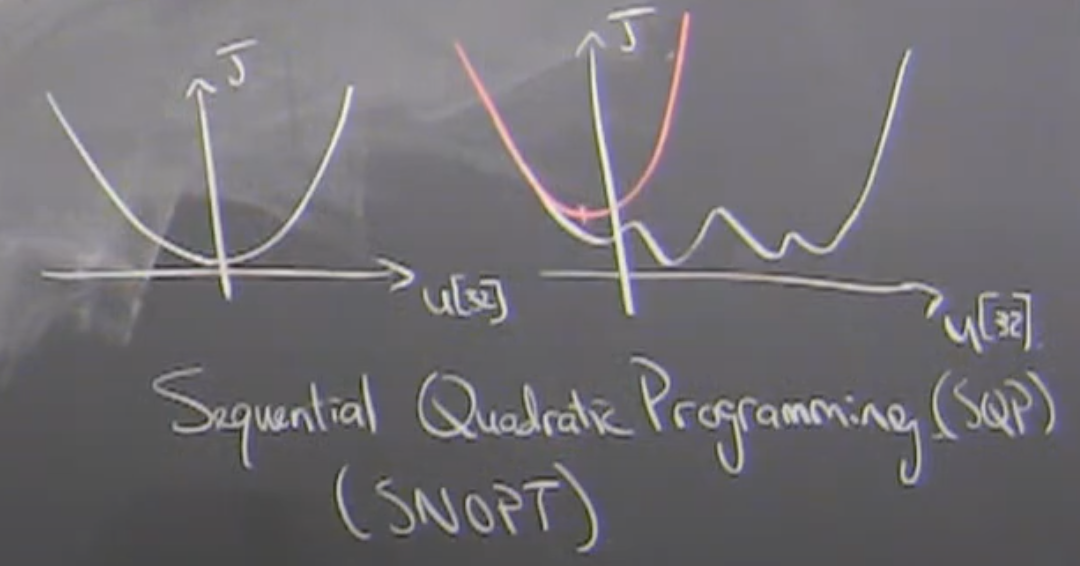 J
J
u[32]
u[32]
Sequential Quadratic Programming (SQP)
(SNOPT)